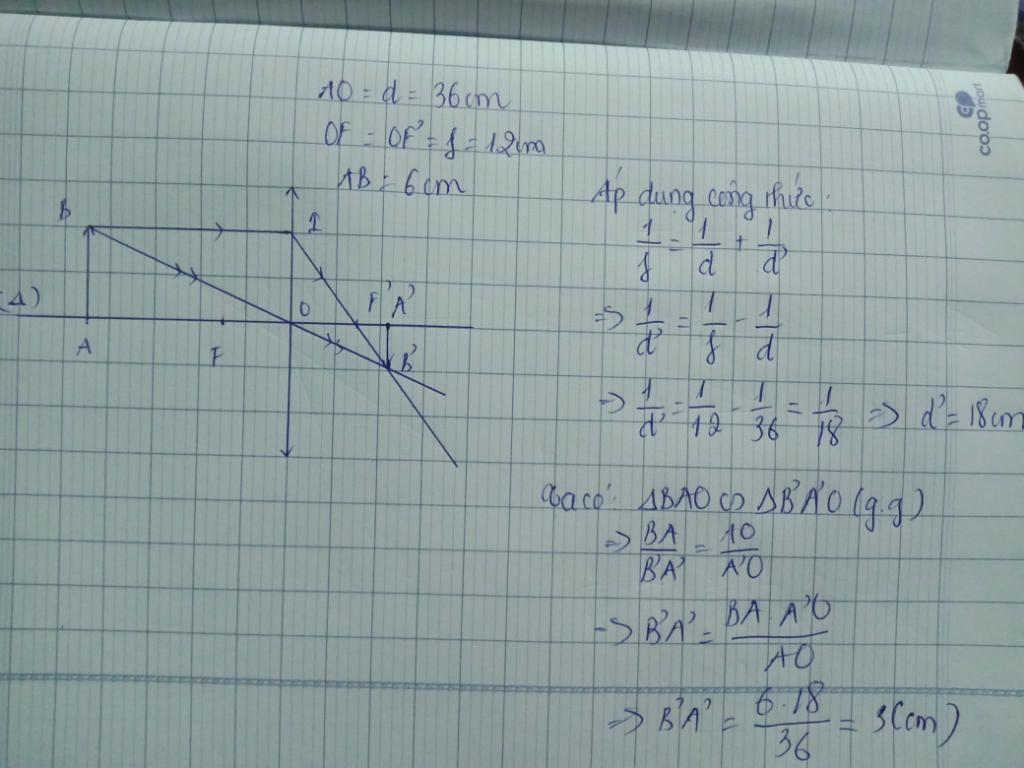 AO = d = 36cm
OF = OF' = f = 12cm
AB = 6cm
B
I
(Δ)
A
F
O
F'
A'
B'
Áp dụng công thức:
1/f = 1/d + 1/d'
=> 1/d' = 1/f - 1/d
=> 1/d' = 1/12 - 1/36 = 1/18 => d' = 18cm
Ta có: ΔBAO ∽ ΔB'A'O (g.g)
=> BA/B'A' = AO/A'O
=> B'A' = BA.A'O/AO
=> B'A' = 6.18/36 = 3(cm)
co.opmart